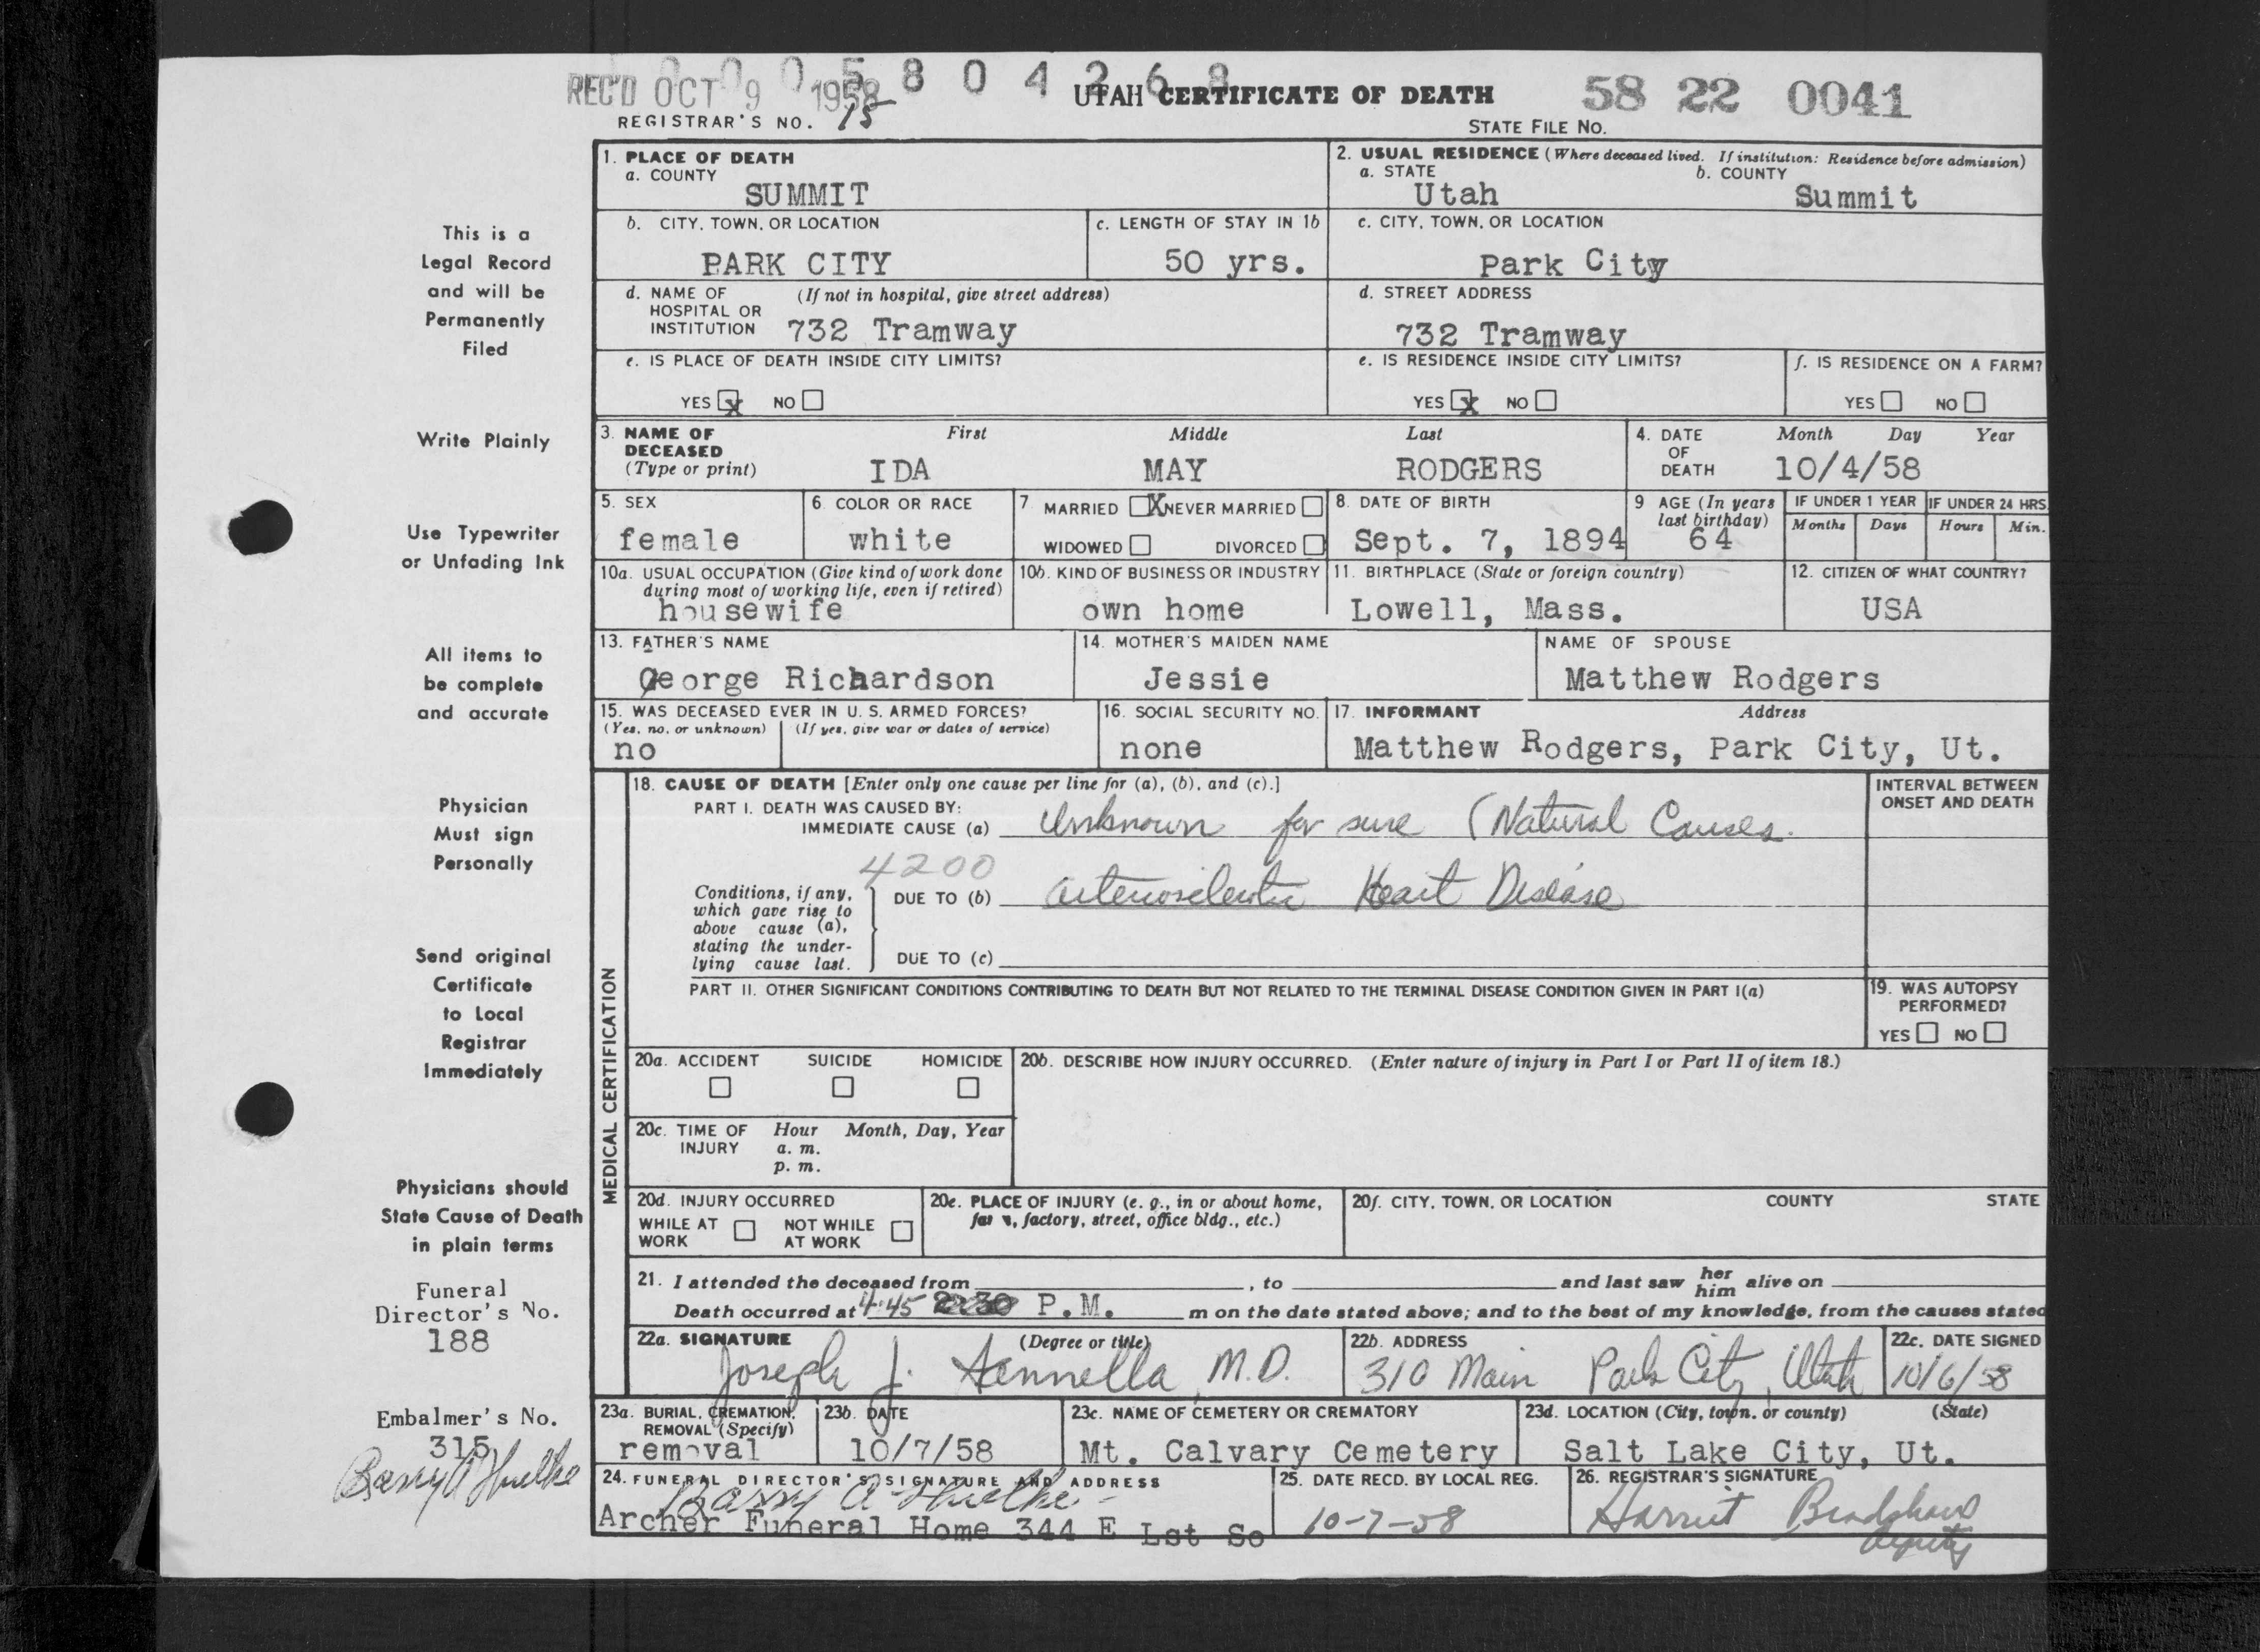 0 0 0 5 8 0 4 2 6 8
REC'D OCT 9 1958
UTAH CERTIFICATE OF DEATH
58 22 0041
REGISTRAR'S NO. 15
STATE FILE No.
1. PLACE OF DEATH
a. COUNTY
SUMMIT
2. USUAL RESIDENCE (Where deceased lived. If institution: Residence before admission)
a. STATE b. COUNTY
Utah Summit
b. CITY, TOWN, OR LOCATION
PARK CITY
c. LENGTH OF STAY IN 1b
50 yrs.
c. CITY, TOWN, OR LOCATION
Park City
d. NAME OF HOSPITAL OR INSTITUTION (If not in hospital, give street address)
732 Tramway
d. STREET ADDRESS
732 Tramway
e. IS PLACE OF DEATH INSIDE CITY LIMITS?
YES X NO
e. IS RESIDENCE INSIDE CITY LIMITS?
YES X NO
f. IS RESIDENCE ON A FARM?
YES NO
3. NAME OF DECEASED (Type or print)
First Middle Last
IDA MAY RODGERS
4. DATE OF DEATH Month Day Year
10/4/58
5. SEX
female
6. COLOR OR RACE
white
7 MARRIED X NEVER MARRIED
WIDOWED DIVORCED
8. DATE OF BIRTH
Sept. 7, 1894
9 AGE (In years last birthday)
64
IF UNDER 1 YEAR
Months Days
IF UNDER 24 HRS
Hours Min.
10a. USUAL OCCUPATION (Give kind of work done during most of working life, even if retired)
housewife
10b. KIND OF BUSINESS OR INDUSTRY
own home
11. BIRTHPLACE (State or foreign country)
Lowell, Mass.
12. CITIZEN OF WHAT COUNTRY?
USA
13. FATHER'S NAME
George Richardson
14. MOTHER'S MAIDEN NAME
Jessie
NAME OF SPOUSE
Matthew Rodgers
15. WAS DECEASED EVER IN U. S. ARMED FORCES?
(Yes, no, or unknown) (If yes, give war or dates of service)
no
16. SOCIAL SECURITY NO.
none
17. INFORMANT Address
Matthew Rodgers, Park City, Ut.
MEDICAL CERTIFICATION
18. CAUSE OF DEATH [Enter only one cause per line for (a), (b), and (c).]
PART I. DEATH WAS CAUSED BY:
IMMEDIATE CAUSE (a) Unknown for sure (Natural Causes.
4200
Conditions, if any, which gave rise to above cause (a), stating the underlying cause last.
DUE TO (b) arteriosclerotic Heart Disease
DUE TO (c)
INTERVAL BETWEEN ONSET AND DEATH
PART II. OTHER SIGNIFICANT CONDITIONS CONTRIBUTING TO DEATH BUT NOT RELATED TO THE TERMINAL DISEASE CONDITION GIVEN IN PART I(a)
19. WAS AUTOPSY PERFORMED?
YES NO
20a. ACCIDENT SUICIDE HOMICIDE
20b. DESCRIBE HOW INJURY OCCURRED. (Enter nature of injury in Part I or Part II of item 18.)
20c. TIME OF INJURY Hour Month, Day, Year
a. m.
p. m.
20d. INJURY OCCURRED
WHILE AT WORK NOT WHILE AT WORK
20e. PLACE OF INJURY (e. g., in or about home, farm, factory, street, office bldg., etc.)
20f. CITY, TOWN, OR LOCATION COUNTY STATE
21. I attended the deceased from , to and last saw her him alive on
Death occurred at 4:45 P.M. m on the date stated above; and to the best of my knowledge, from the causes stated
22a. SIGNATURE (Degree or title)
Joseph J. M.D.
22b. ADDRESS
310 Main Park City, Utah
22c. DATE SIGNED
10/6/58
23a. BURIAL, CREMATION, REMOVAL (Specify)
removal
23b. DATE
10/7/58
23c. NAME OF CEMETERY OR CREMATORY
Mt. Calvary Cemetery
23d. LOCATION (City, town, or county) (State)
Salt Lake City, Ut.
24. FUNERAL DIRECTOR'S SIGNATURE AND ADDRESS
Barry A
Archer Funeral Home 344 E Lst So
25. DATE RECD. BY LOCAL REG.
10-7-58
26. REGISTRAR'S SIGNATURE
Harriet Bradshaw
deputy
This is a
Legal Record
and will be
Permanently
Filed
Write Plainly
Use Typewriter
or Unfading Ink
All items to
be complete
and accurate
Physician
Must sign
Personally
Send original
Certificate
to Local
Registrar
Immediately
Physicians should
State Cause of Death
in plain terms
Funeral
Director's No.
188
Embalmer's No.
315
Barry A